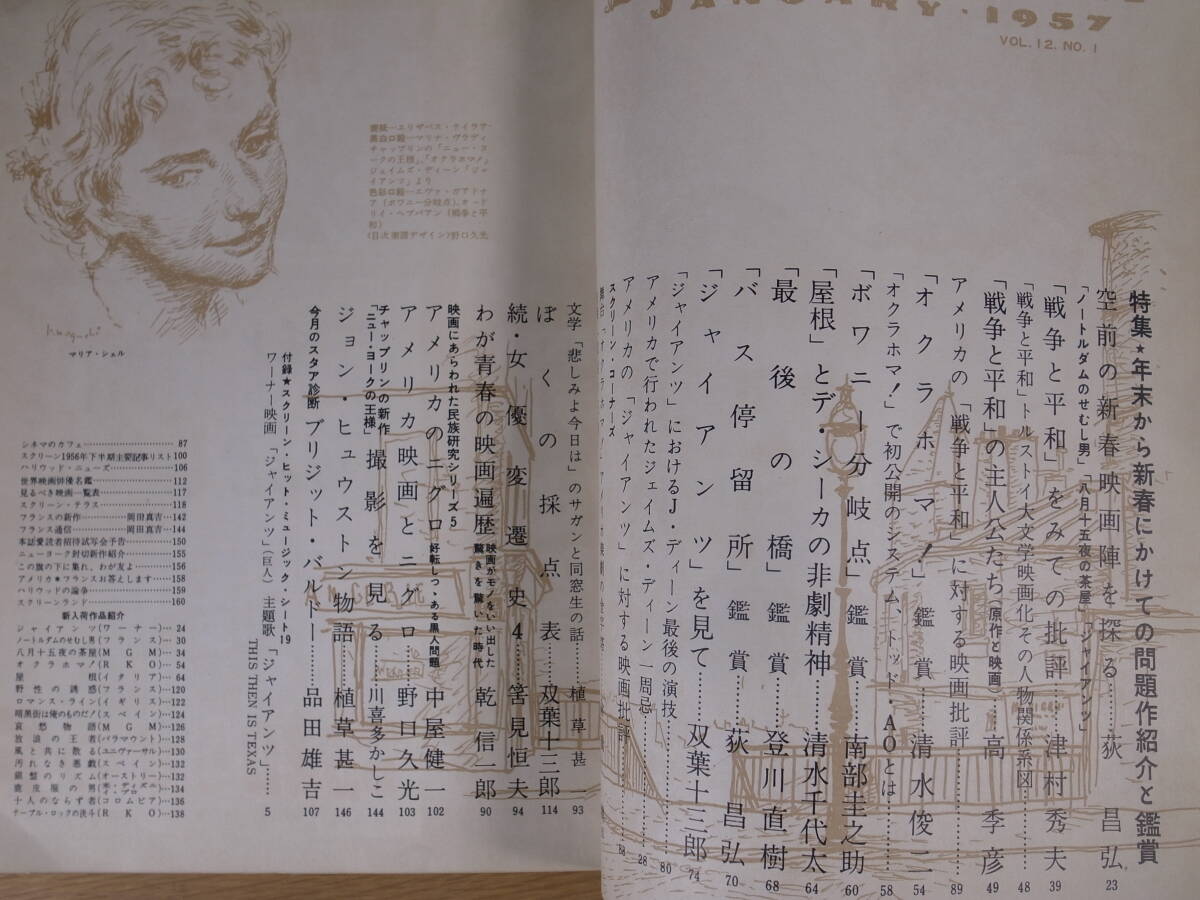 JANUARY・1957
VOL. 12. NO. 1
特集★年末から新春にかけての問題作紹介と鑑賞
空前の新春映画陣を探る……荻昌弘 23
「ノートルダムのせむし男」「八月十五夜の茶屋」「ジャイアンツ」
「戦争と平和」をみての批評……津村秀夫 39
「戦争と平和」トルストイ大文学映画化その人物関係系図…… 48
「戦争と平和」の主人公たち(原作と映画)……高季彦 49
アメリカの「戦争と平和」に対する映画批評…… 89
「オクラホマ!」鑑賞……清水俊二 54
「オクラホマ!」で初公開のシステム、トッド・AOとは…… 58
「ボワニー分岐点」鑑賞……南部圭之助 60
「屋根」とデ・シーカの非劇精神……清水千代太 64
「最後の橋」鑑賞……登川直樹 68
「バス停留所」鑑賞……荻昌弘 70
「ジャイアンツ」を見て……双葉十三郎 74
「ジャイアンツ」におけるJ・ディーン最後の演技…… 80
アメリカで行われたジェイムズ・ディーン一周忌…… 28
アメリカの「ジャイアンツ」に対する映画批評
スクリーン・コーナーズ
表紙―エリザベス・テイラア
黒白口絵―マリナ・ヴラディ
チャップリンの「ニュー・ヨ
ークの王様」、「オクラホマ!」
ジェイムズ・ディーン「ジャ
イアンツ」より
色彩口絵―エヴァ・ガアドナ
ア(ボワニー分岐点)、オード
リイ・ヘプバアン(戦争と平
和)
(目次裏面デザイン)野口久光
マリア・シェル
文学「悲しみよ今日は」のサガンと同窓生の話……植草甚一 93
ぼくの採点表……双葉十三郎 114
続・女優変遷史4……筈見恒夫 94
わが青春の映画遍歴 映画がモノをいい出した驚きを驚いた時代 乾信一郎 90
映画にあらわれた民族研究シリーズ5
アメリカのニグロ―好転しつゝある黒人問題……中屋健一 102
アメリカ映画とニグロ……野口久光 103
チャップリンの新作「ニュー・ヨークの王様」撮影を見る……川喜多かしこ 144
ジョン・ヒュウストン物語……植草甚一 146
今月のスタア診断 ブリジット・バルドー……品田雄吉 107
付録★スクリーン・ヒット・ミュージック・シート19
ワーナー映画「ジャイアンツ」(巨人)主題歌「ジャイアンツ」…… 5
THIS THEN IS TEXAS
シネマのカフェ……87
スクリーン1956年下半期主要記事リスト100
ハリウッド・ニュース……106
世界映画俳優名鑑……112
見るべき映画一覧表……117
スクリーン・テラス……118
フランスの新作……岡田真吉…142
フランス通信……岡田真吉…144
本誌愛読者招待試写会予告……150
ニューヨーク封切新作紹介……155
この旗の下に集れ、わが友よ……156
アメリカ★フランスお答えします……158
ハリウッドの論争……159
スクリーンランド……160
新入荷作品紹介
ジャイアンツ(ワーナー)…24
ノートルダムのせむし男(フランス)…30
八月十五夜の茶屋(MGM)…34
オクラホマ!(RKO)…54
屋根(イタリア)…64
野性の誘惑(フランス)…120
ロマンス・ライン(イギリス)…122
暗黒街は俺のものだ!(スペイン)…124
哀愁物語(MGM)…126
放浪の王者(パラマウント)…128
風と共に散る(ユニヴァーサル)…130
汚れなき悪戯(スペイン)…132
銀盤のリズム(オーストリー)…132
鹿皮服の男(米・ディズニイ・プロ)…134
十人のならず者(コロムビア)…136
テーブル・ロックの決斗(RKO)…138